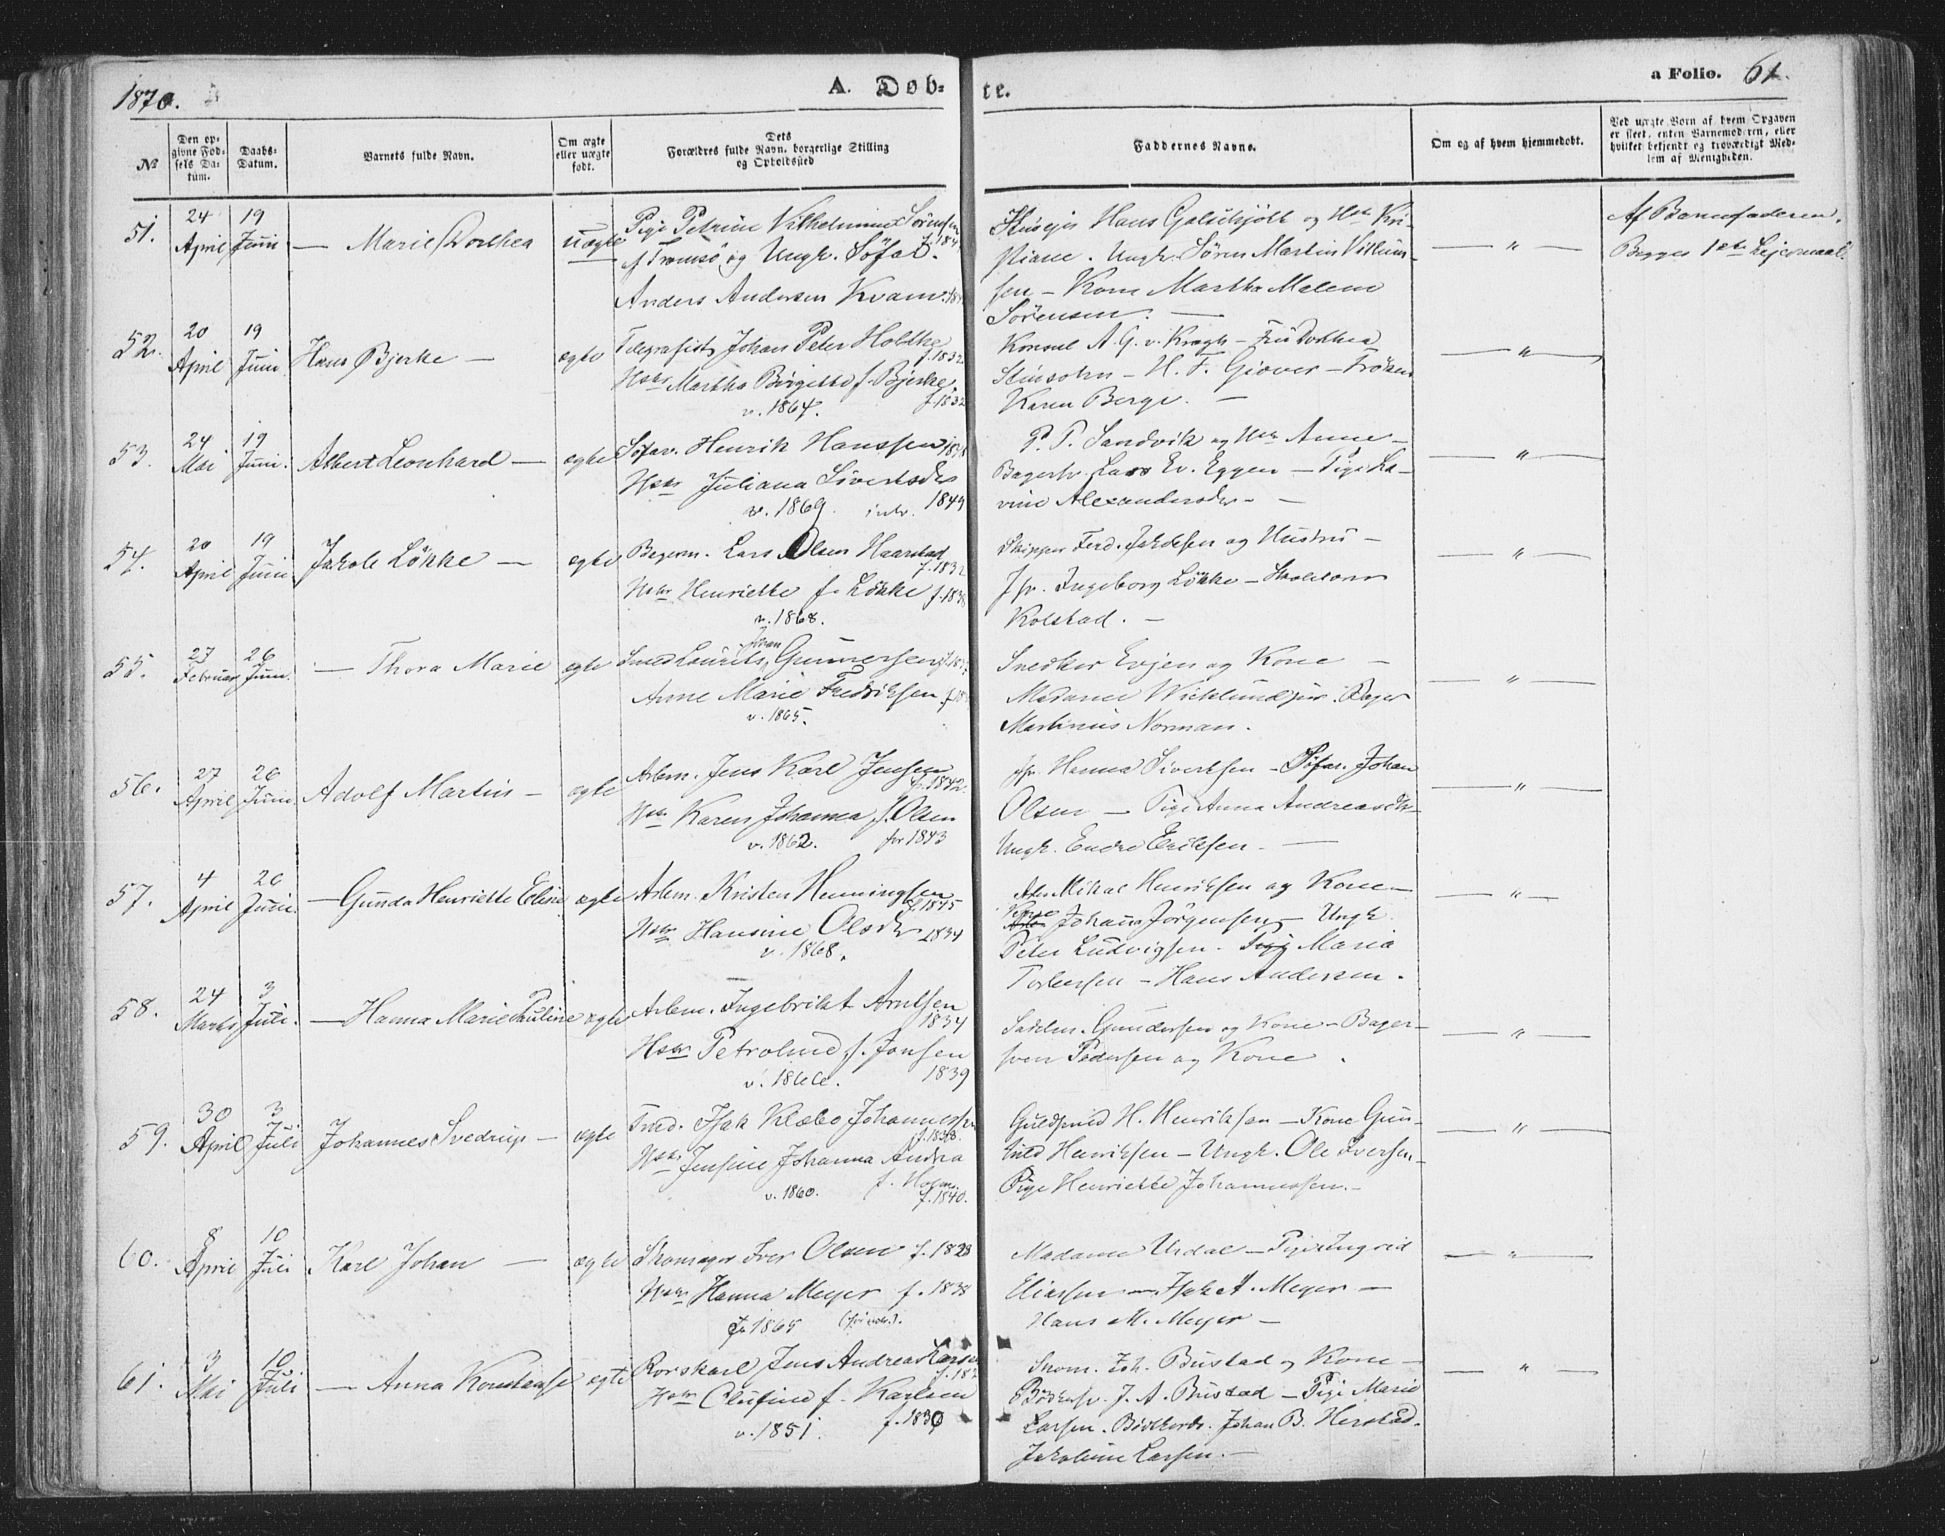 1870.
A. Døb-
te.
a Folio. 61.
№
Den op-
givne Fød-
sels Da-
tum.
Daabs-
Datum.
Barnets fulde Navn.
Om ægte
eller uægte
født.
Dets
Forældres fulde Navn, borgerlige Stilling
og Opholdssted
Faddernes Navne.
Om og af hvem hjemmedøbt.
Ved uægte Børn af hvem Opgaven
er skeet, enten Barnemoderen, eller
hvilket bekjendt og troværdigt Med-
lem af Menigheden.
51.
24 April
19 Juni
— Marie Dorthea
uægte
Pige Petrine Vilhelmine Sörensen
f. Tromsö og Ungk. Söfar.
Anders Andersen Kvam
Hans og Hst. Kri-
stiane. Ungk. Sören Martin Villum-
sen — Kone Martha Malene
Sörensen. —
— " —
Af Barnefaderen.
Begges 1ste Lejermaal.
52.
20 April
19 Juni
Hans Bjerke —
ægte
Telegrafist Johan Peter Holtke
f. 1832
Hstr Martha Birgitte f. Bjerke.
v. 1864. f. 1832
Konsul A. G. v. Krogh — Fru Dorthea
Steinsohn — H. F. Giæver — Fröken
Karen Berge. —
— " —
53.
24 Mai
19 Juni.
Albert Leonhard —
ægte
Söfar. Henrik Hanssen
Hstr Juliana Sivertsdr
v. 1869. 1849
P. P. Sandvik og Hstr Anne —
Bagersv. Lars Ev. Eggen — Pige La-
vine Alexandersdr. —
— " —
54.
20 April
19 Juni
Jakob Lökke —
ægte
Bagerm. Lars Olsen Haarstad
f. 1832
Hstr Henriette f. Lökke f. 1838
v. 1868.
Skipper Ferd. Jakobsen og Hustru —
Jfr. Ingeborg Lökke —
Kolstad. —
— " —
55.
27 Februar
26 Juni.
— Thora Marie
ægte
Smed Laurits Johan Gunnersen
Anne Marie Fredriksen
v. 1865.
Snedker Evjen og Kone —
Madame Wicklund Bager
Martinus Norman.
— " —
56.
27 April
26 Juni
Adolf Martin —
ægte
Arbm. Jens Karl Jensen
f. 1842.
Hstr Karen Johanna f. Olsen
v. 1862. f. 1843
Jfr. Hanna Sivertsen — Söfar. Johan
Olsen — Pige Anna Andreasdtr
Ungk. Endre Eriksen. —
— " —
57.
4 April
26 Juni.
— Gunda Henriette Eline
ægte
Arbm. Kristen Henningsen
f. 1845
Hstr Hansine Olsdtr 1834
v. 1868.
Arb. Mikal Henriksen og Kone —
Kone Johanna Jörgensen — Ungk.
Peter Ludvigsen. Maria
Torbersen — Hans Andersen.
— " —
58.
24 Marts
3 Juli.
— Hanna Marie Pauline
ægte
Arbm. Ingebrikt Arntsen
1834
Hstr Petroline f. Jonsen
v. 1866. 1839
Gundersen og Kone — Bager-
svend Pedersen og Kone.
— " —
59.
30 April
3 Juli
Johannes Svedrup —
ægte
Isak Klæbo Johannessen
Hstr Jensine Johanna Andrea
f. Holm.
v. 1860. f. 1840.
Guldsmed H. Henriksen — Kone Gun-
hild Henriksen — Ungk. Ole Iversen —
Pige Henriette Johannessen. —
— " —
60.
8 April
10 Juli
Karl Johan —
ægte
Skomager Iver Olsen f. 1828
Hstr Hanna Meyer f. 1838
1865
Madame Urdal — Pige Ingrid
Eliassen — Isak A. Meyer —
Hans M. Meyer —
— " —
61.
3 Mai
10 Juli
— Anna Konstanse
ægte
Rorskarl Jens Andreas Larsen
Hstr Olufine f. Karlsen
v. 1851. f. 1830
Joh. Bustad og Kone —
J. A. Bustad — Pige Marie
Larsen. Johan B. Herstad.
Jakobine Larsen. —
— " —